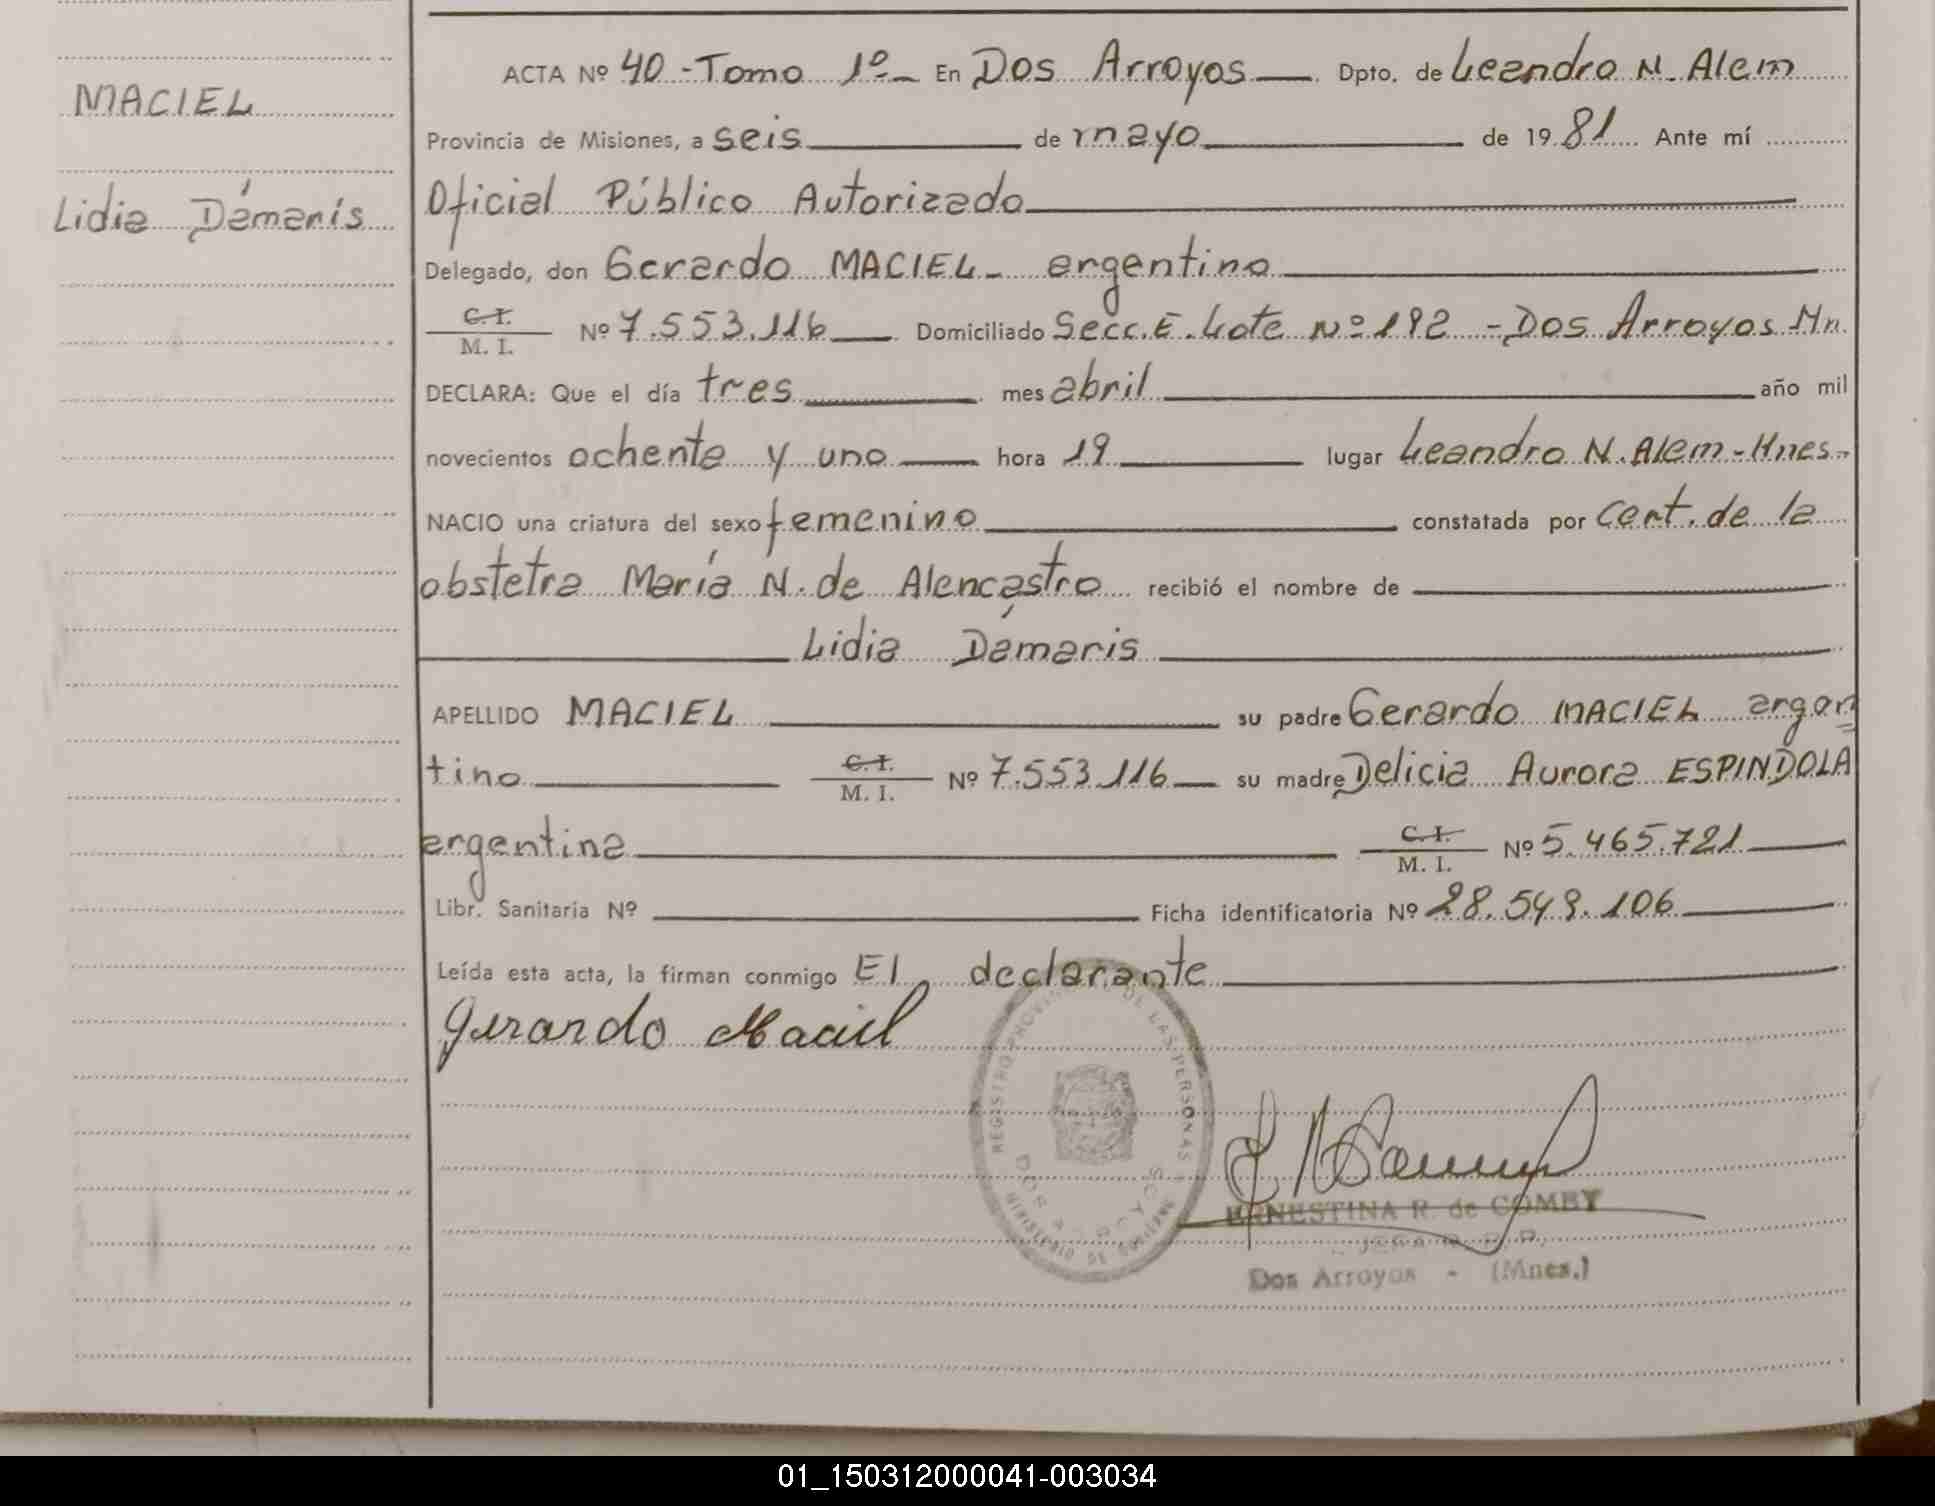 MACIEL
Lidia Dámaris
ACTA Nº 40 - Tomo 1º - En Dos Arroyos Dpto. de Leandro N. Alem
Provincia de Misiones, a seis de mayo de 19 81 Ante mí
Oficial Público Autorizado
Delegado, don Gerardo MACIEL - argentino
C. I. / M. I. Nº 7.553.116 Domiciliado Secc. E. Lote Nº 192 - Dos Arroyos Mn.
DECLARA: Que el día tres mes abril año mil
novecientos ochenta y uno hora 19 lugar Leandro N. Alem - Mnes -
NACIO una criatura del sexo femenino constatada por Cert. de la
obstetra María N. de Alencastro recibió el nombre de
Lidia Dámaris
APELLIDO MACIEL su padre Gerardo MACIEL argen
tino C. I. / M. I. Nº 7.553.116 su madre Delicia Aurora ESPINDOLA
argentina C. I. / M. I. Nº 5.465.721
Libr. Sanitaria Nº Ficha identificatoria Nº 28.549.106
Leída esta acta, la firman conmigo El declarante
Gerardo Maciel
REGISTRO PROVINCIAL DE LAS PERSONAS
MINISTERIO DE GOBIERNO
DOS ARROYOS
ERNESTINA R. de COMBY
JEFA
Dos Arroyos - (Mnes.)
01_150312000041-003034